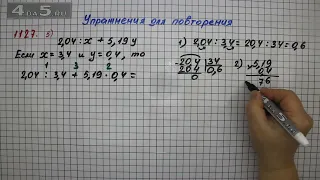 4DA5.RU
Упражнения для повторения
1127. 3)
2,04 : x + 5,19 y
Если x = 3,4 и y = 0,4, то
1 3 2
2,04 : 3,4 + 5,19 · 0,4 =
1) 2,04 : 3,4 = 20,4 : 34 = 0,6
-20,4 |34
20,4 |0,6
0
2) ×5,19
0,4
76